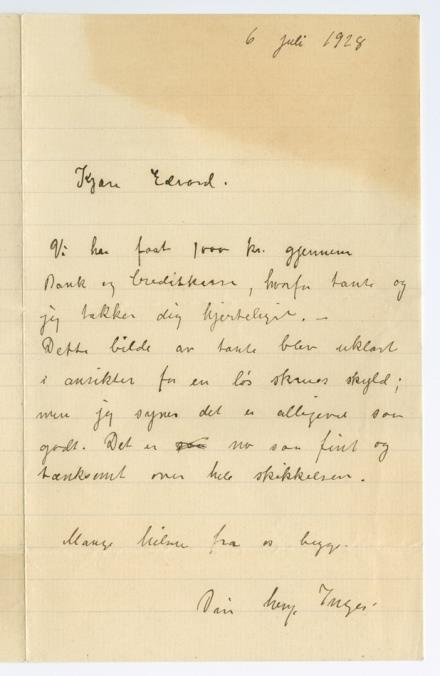 6 juli 1928
Kjære Edvard.
Vi har faat 1000 kr. gjennem
Bank og Creditkasse, hvorfor tante og
jeg takker dig hjerteligst. —
Dette bilde av tante blev uklart
i ansiktet for en løs skrues skyld;
men jeg synes det er alligevel saa
godt. Det er no saa fint og
tænksomt over hele skikkelsen.
Mange hilsner fra os begge.
Din heng. Inger.